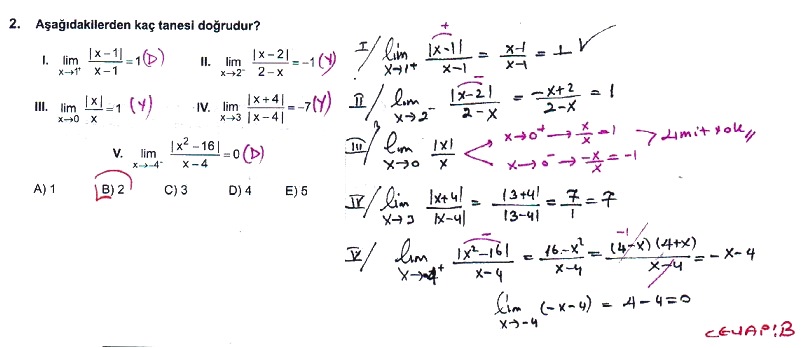 2. Aşağıdakilerden kaç tanesi doğrudur?
I. lim x→1⁺ |x−1|/(x−1) = 1 (D)
II. lim x→2⁻ |x−2|/(2−x) = −1 (Y)
III. lim x→0 |x|/x = 1 (Y)
IV. lim x→3 |x+4|/|x−4| = −7 (Y)
V. lim x→−4⁻ |x²−16|/(x−4) = 0 (D)
A) 1 B) 2 C) 3 D) 4 E) 5
I/ lim x→1⁺ |x−1|/(x−1) = (x−1)/(x−1) = 1 ✓
+
II/ lim x→2⁻ |x−2|/(2−x) = (−x+2)/(2−x) = 1
−
III/ lim x→0 |x|/x
x→0⁺ → x/x = 1
x→0⁻ → −x/x = −1
Limit yok //
IV/ lim x→3 |x+4|/|x−4| = |3+4|/|3−4| = 7/1 = 7
V/ lim x→−4⁺ |x²−16|/(x−4) = (16−x²)/(x−4) = (4−x)(4+x)/(x−4) = −x−4
− −1
lim x→−4 (−x−4) = 4−4=0
CEVAP: B